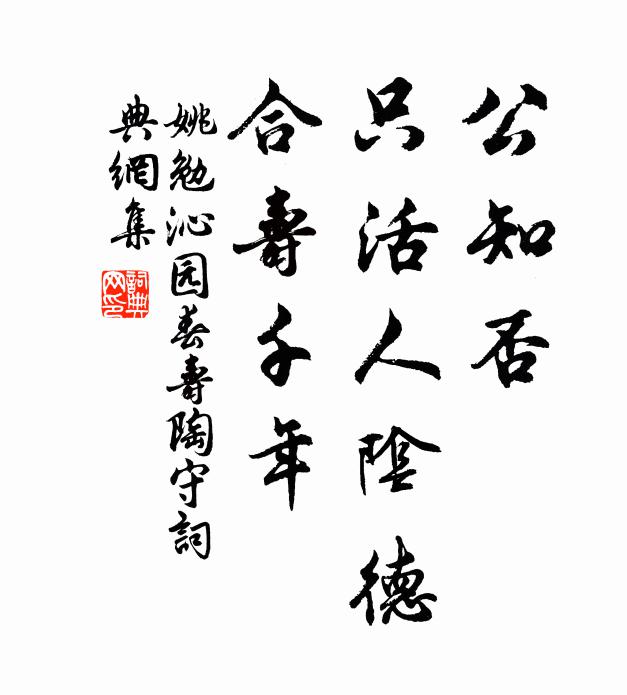 公知否
只活人陰德
合壽千年
姚勉沁园春壽陶守詞
典網集
詞典
网印